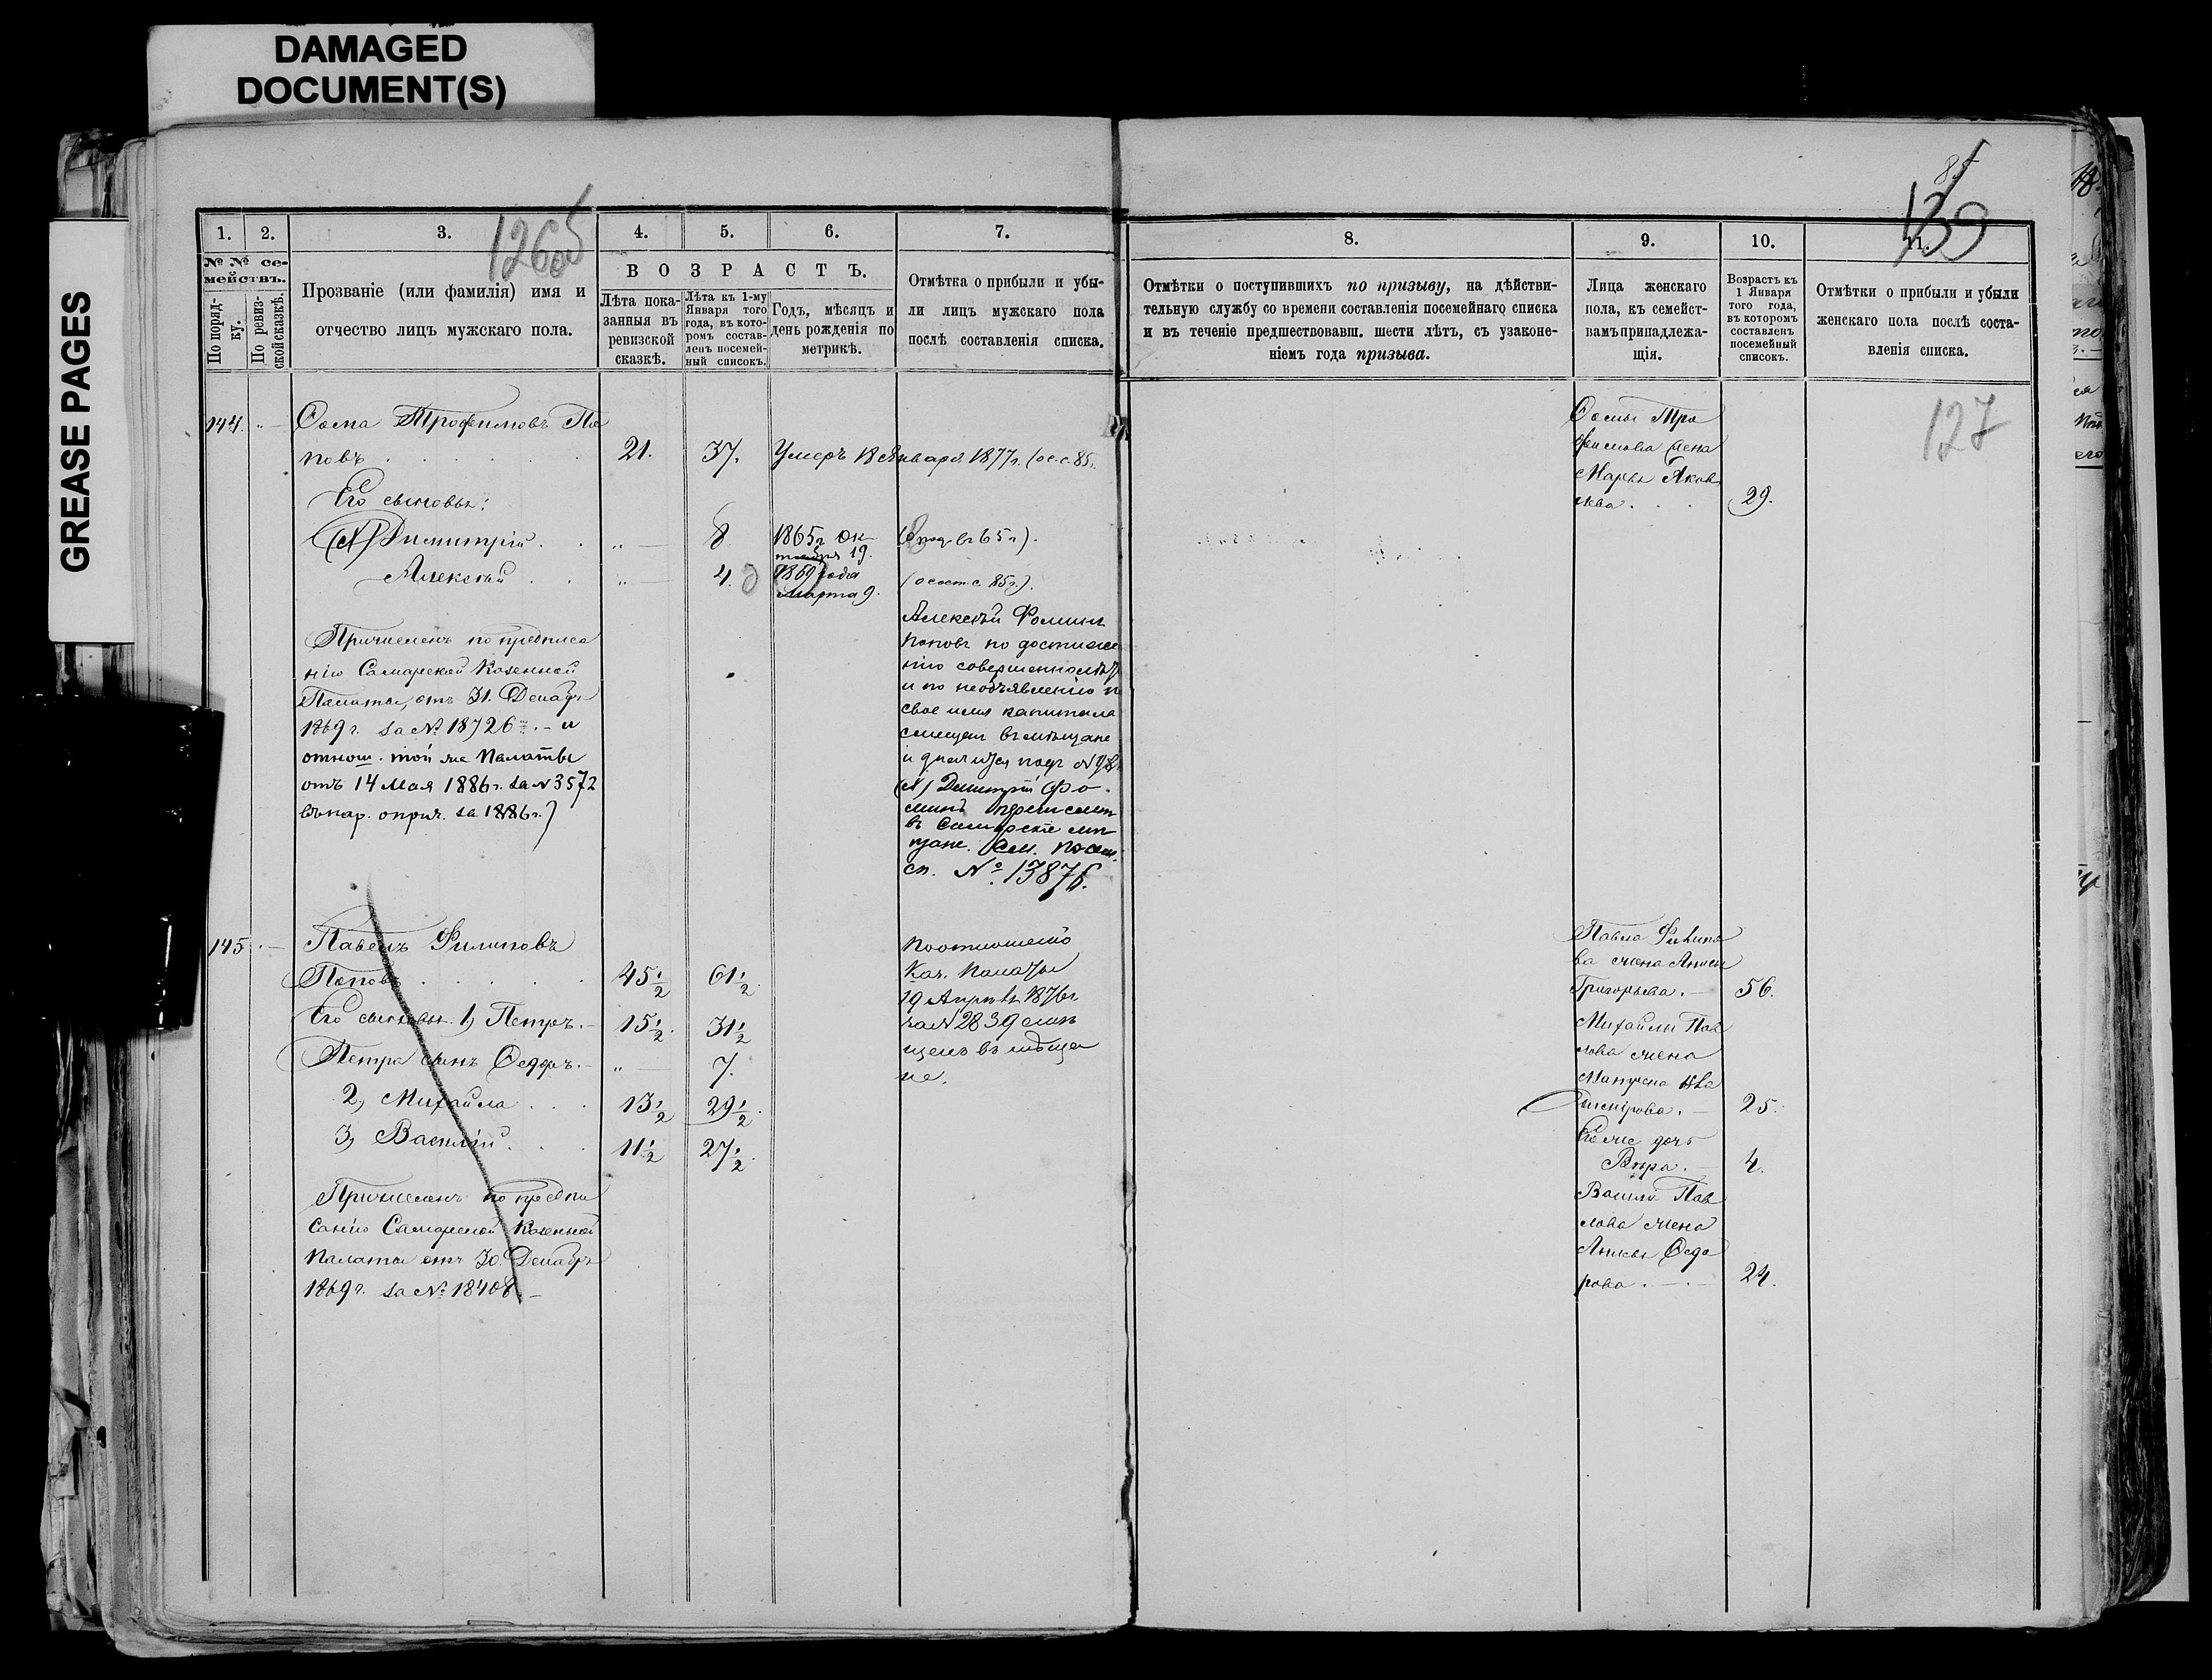 DAMAGED
DOCUMENT(S)
GREASE PAGES
1.
2.
3.
4.
5.
6.
7.
№№ се-
мействъ.
По поряд-
ку.
По ревиз-
ской сказкѣ.
Прозваніе (или фамилія) имя и
отчество лицъ мужскаго пола.
ВОЗРАСТЪ.
Лѣта пока-
занныя въ
ревизской
сказкѣ.
Лѣта къ 1-му
Января того
года, въ кото-
ромъ состав-
ленъ посемей-
ный списокъ.
Годъ, мѣсяцъ и
день рожденія по
метрикѣ.
Отмѣтка о прибыли и убы-
ли лицъ мужскаго пола
послѣ составленія списка.
144.
Ѳома Трофимовъ По
повъ
21.
37.
Умеръ 18 Января 1877 г.
Его сыновья:
Димитрій
8
1865 г. Ок-
тября 19.
Алексѣй
4.
1869 года
Марта 9.
Причисленъ по предписа
нію Самарской Казенной
Палаты, отъ 31. Декабр
1869 г. за № 18726 и
отнош. той же Палаты
отъ 14 Мая 1886 г. за № 3572
Алексѣй Ѳоминъ
Поповъ по достиже
нію совершеннолѣт
и по необъявленію н
свое имя капитала
въ мѣщане
Димитрій Ѳо-
минъ перечислен
въ Самарскіе мѣ
щане. См. посем.
сп. № 13876.
145
Павелъ Филиповъ
Поповъ
45½
61½
Его сыновья: 1, Петръ.
15½
31½
Петра сынъ Ѳедоръ.
7.
2, Михайла
13½
29½
3, Василій
11½
27½
Причисленъ по предпи
санію Самарской Казенной
Палаты отъ 30. Декабр
1869 г. за № 18408
По отношенію
Каз. Палаты
19 Апрѣля 1876 г.
за № 2839
въ мѣща
не.
8.
9.
10.
11.
130
Отмѣтки о поступившихъ по призыву, на дѣйстви-
тельную службу со времени составленія посемейнаго списка
и въ теченіе предшествовавш. шести лѣтъ, съ узаконе-
ніемъ года призыва.
Лица женскаго
пола, къ семейст-
вамъ принадлежа-
щія.
Возрастъ къ
1 Января
того года,
въ которомъ
составленъ
посемейный
списокъ.
Отмѣтки о прибыли и убыли
женскаго пола послѣ соста-
вленія списка.
127
Ѳомы Тро
фимова жена
Марья Яков
лева
29.
Павла Филипо
ва жена Анисья
Григорьева.
56.
Михайлы Пав
лова жена
Матрена Вла
димірова.
25.
Его же дочь
Вѣра.
4.
Василія Пав
лова жена
Анисья Ѳедо
рова
24.